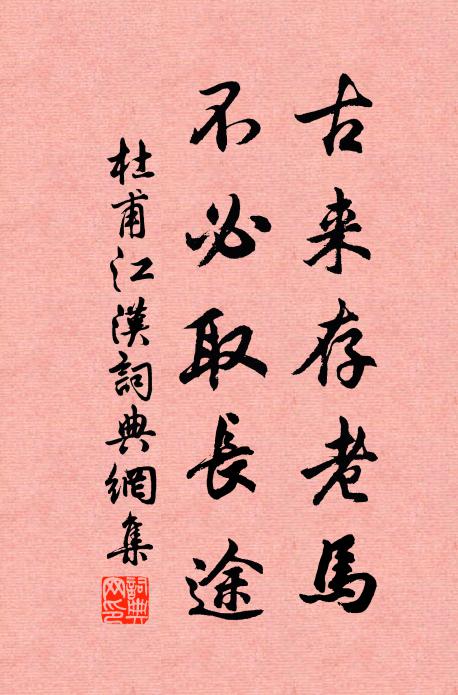 古来存老馬
不必取長途
杜甫江漢詞典網集
詞典
网印